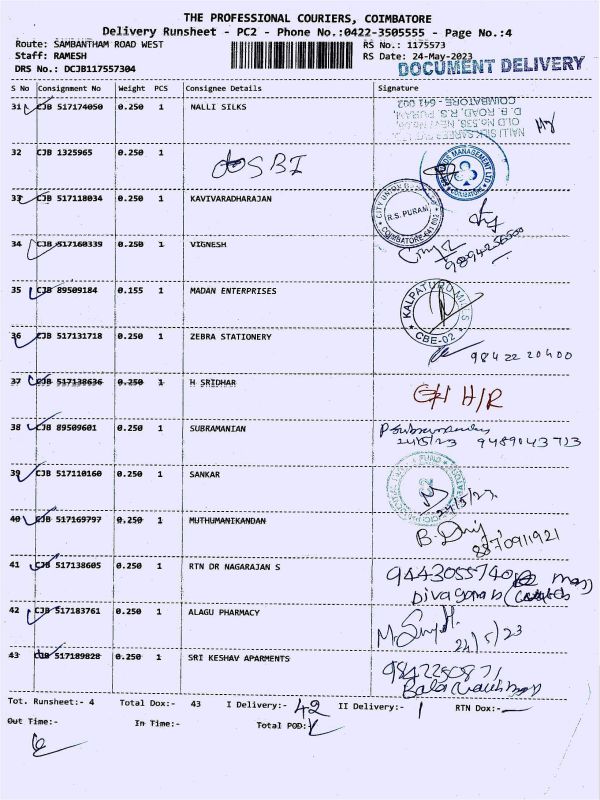 THE PROFESSIONAL COURIERS, COIMBATORE
Delivery Runsheet - PC2 - Phone No.:0422-3505555 - Page No.:4
Route: SAMBANTHAM ROAD WEST RS No.: 1175573
Staff: RAMESH RS Date: 24-May-2023
DRS No.: DCJB117557304 DOCUMENT DELIVERY
S No Consignment No Weight PCS Consignee Details Signature
31 CJB 517174050 0.250 1 NALLI SILKS
D. B. ROAD, R.S. PURAM,
COIMBATORE - 641 002
32 CJB 1325965 0.250 1 SBI
MANAGEMENT LTD
33 CJB 517118034 0.250 1 KAVIVARADHARAJAN
CITY UNION
R.S. PURAM
COIMBATORE-641 002
34 CJB 517160339 0.250 1 VIGNESH
35 CJB 89509184 0.155 1 MADAN ENTERPRISES
CBE-02
36 CJB 517131718 0.250 1 ZEBRA STATIONERY
98422 20400
37 CJB 517138636 0.250 1 H SRIDHAR H/R
38 CJB 89509601 0.250 1 SUBRAMANIAN
24/5/23 9489043723
39 CJB 517110160 0.250 1 SANKAR
24/5/23
40 CJB 517169797 0.250 1 MUTHUMANIKANDAN
8870911921
41 CJB 517138605 0.250 1 RTN DR NAGARAJAN S 9443055740
42 CJB 517183761 0.250 1 ALAGU PHARMACY
24/5/23
43 CJB 517189828 0.250 1 SRI KESHAV APARMENTS 9842250871
Tot. Runsheet:- 4 Total Dox:- 43 I Delivery:- 42 II Delivery:- 1 RTN Dox:-
Out Time:- In Time:- Total POD:-